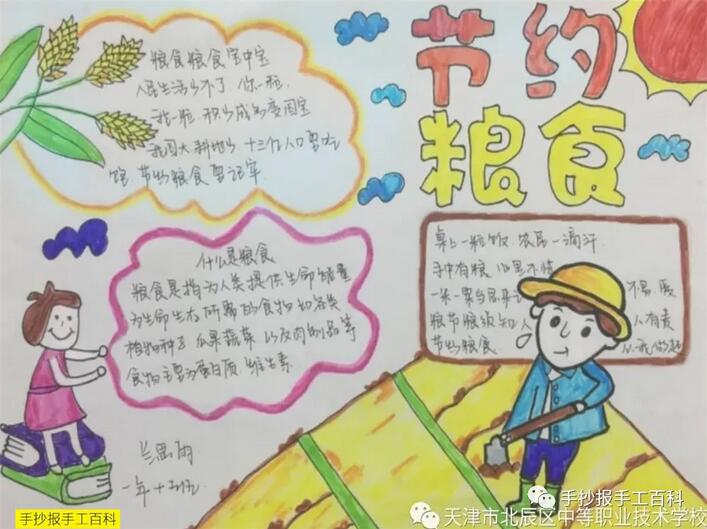 节约
粮食
粮食粮食宝中宝
人民生活少不了你一粒
我一粒积少成多变国宝
我国大耕地少十三亿人口要吃
饱节约粮食要记牢
什么是粮食
粮食是指为人类提供生命能量
为生命生态所需的食物如谷类
植物种子瓜果蔬菜以及肉制品等
食物主要为蛋白质维生素
桌上一粒饭农民一滴汗
手中有粮心里不慌
一米一粟当思来 不易爱
粮节粮须知人 人有责
节约粮食 从我做起
兰思雨
一年十班
手抄报手工百科
手抄报手工百科
天津市北辰区中等职业技术学校